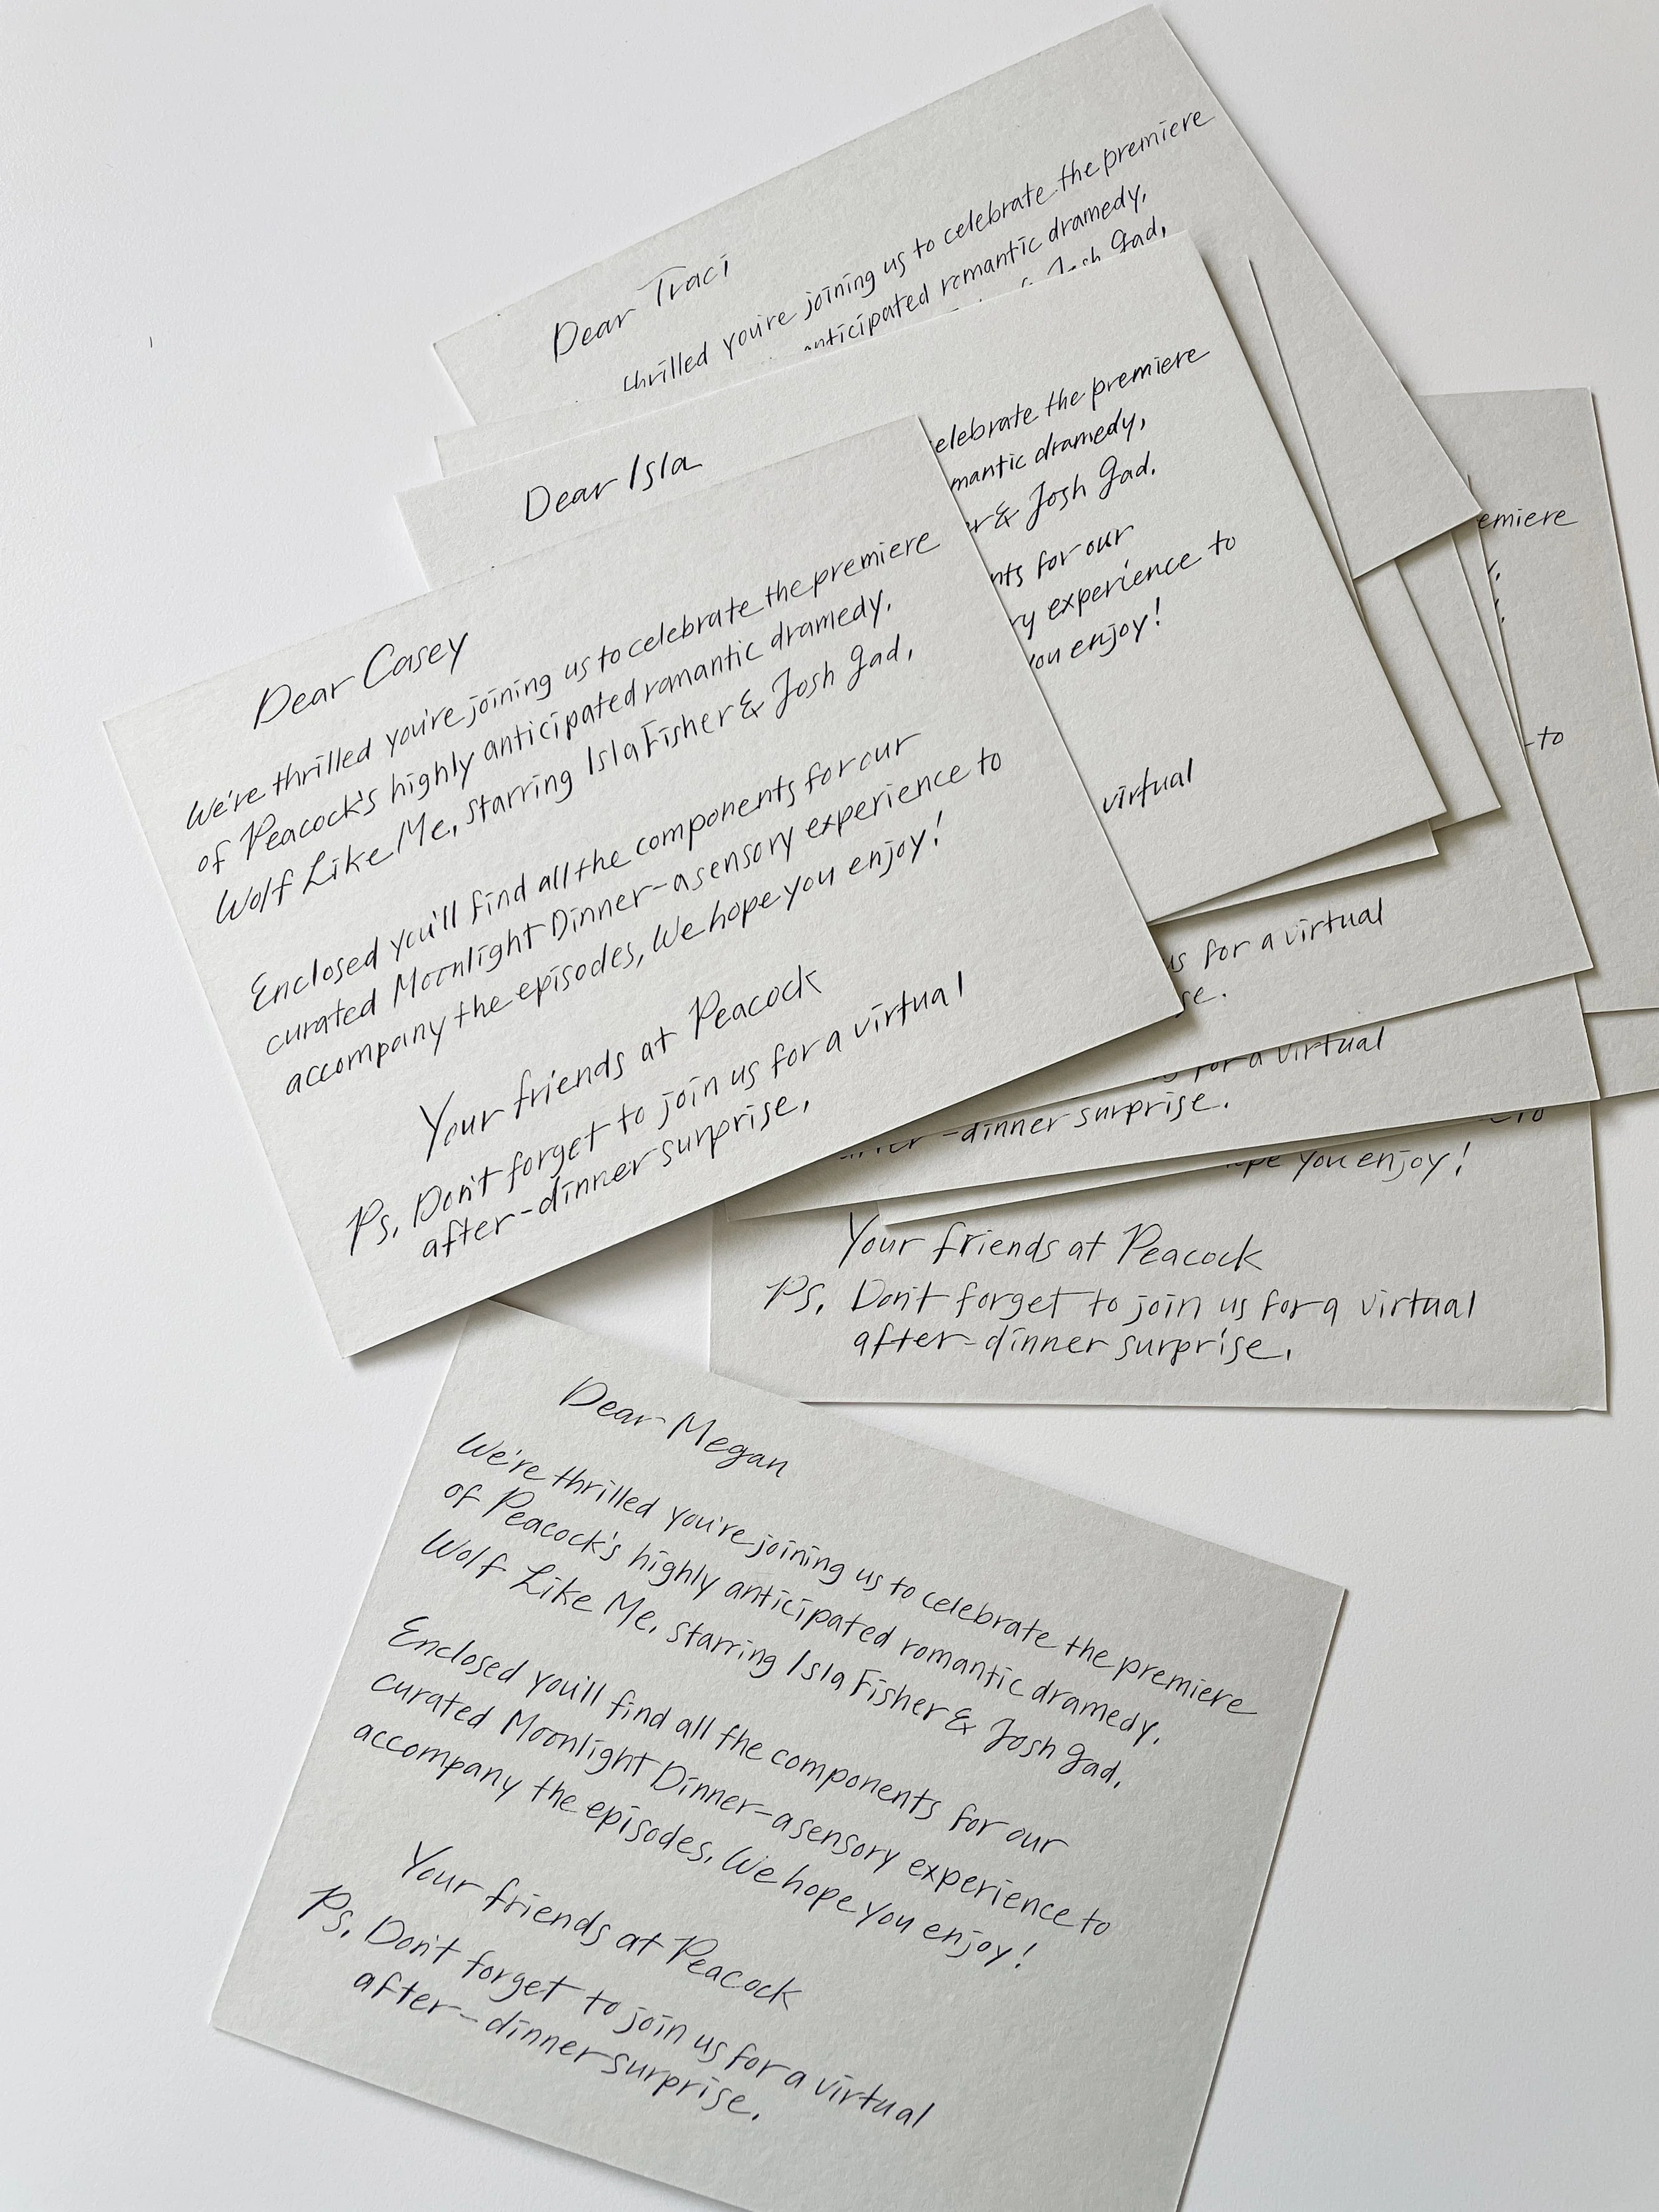 Dear Traci
thrilled you're joining us to celebrate the premiere
anticipated romantic dramedy,
Josh Gad,
Dear Isla
celebrate the premiere
mantic dramedy,
r & Josh Gad.
nts for our
ry experience to
you enjoy!
virtual
Dear Casey
We're thrilled you're joining us to celebrate the premiere
of Peacock's highly anticipated romantic dramedy,
Wolf Like Me, starring Isla Fisher & Josh Gad,
Enclosed you'll find all the components for our
curated Moonlight Dinner-a sensory experience to
accompany the episodes, We hope you enjoy!
Your friends at Peacock
Ps, Don't forget to join us for a virtual
after-dinner surprise,
emiere
-to
us for a virtual
se.
for a virtual
-dinner surprise.
to
hope you enjoy!
Your friends at Peacock
Ps, Don't forget to join us for a virtual
after-dinner surprise,
Dear Megan
We're thrilled you're joining us to celebrate the premiere
of Peacock's highly anticipated romantic dramedy,
Wolf Like Me, starring Isla Fisher & Josh Gad,
Enclosed you'll find all the components for our
curated Moonlight Dinner-a sensory experience to
accompany the episodes, We hope you enjoy!
Your friends at Peacock
Ps, Don't forget to join us for a virtual
after-dinner surprise.